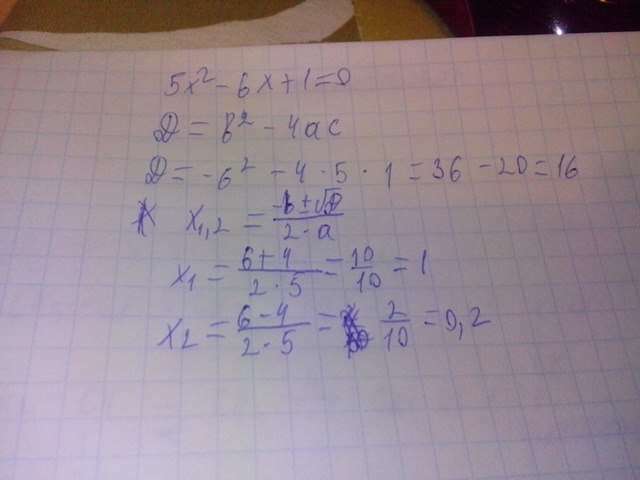 5x² - 6x + 1 = 0
D = b² - 4ac
D = -6² - 4 · 5 · 1 = 36 - 20 = 16
x₁,₂ = (-b ± √D) / (2 · a)
x₁ = (6 + 4) / (2 · 5) = 10/10 = 1
x₂ = (6 - 4) / (2 · 5) = 2/10 = 0,2